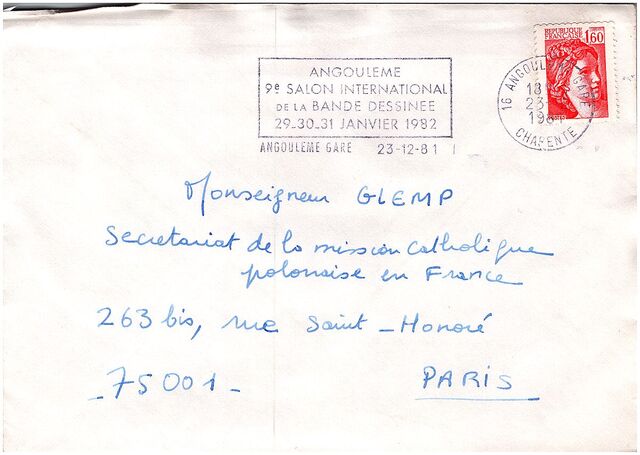 REPUBLIQUE
FRANCAISE
1,60
ANGOULEME
9e SALON INTERNATIONAL
DE LA BANDE DESSINEE
29_30_31 JANVIER 1982
ANGOULEME GARE 23-12-81
16 ANGOULEME GARE
18
23
1981
CHARENTE
Monseigneur GLEMP
Secretariat de la mission Catholique
polonaise en France
263 bis, rue Saint_Honoré
_75001_
PARIS